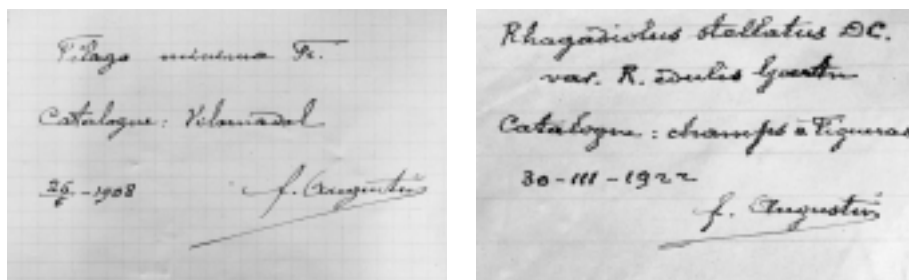 Filago minima Fr.
Catalogne: Vilamadal
-1908
f. Augustin
Rhagadiolus stellatus DC.
var. R. edulis Gaertn
Catalogne: champs à Figueras
30-III-1922
f. Augustin